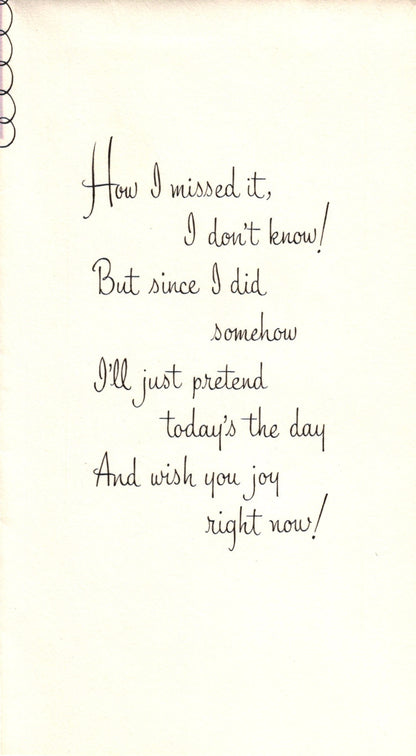 How I missed it,
I don't know!
But since I did
somehow
I'll just pretend
today's the day
And wish you joy
right now!